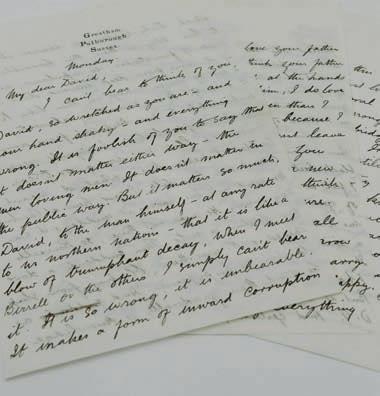 Greatham
Pulborough
Sussex
Monday
My dear David,
I can't bear to think of you,
David, so wretched as you are – and
your hand shaky – and everything
wrong. It is foolish of you to say that
it doesn't matter either way – the
men loving men. It doesn't matter in
the public way. But it matters so much,
David, to the man himself – at any rate
to us northern nations – that it is like a
blow of triumphant decay, when I meet
Birrell or the others. I simply can't bear
it. It is so wrong, it is unbearable.
It makes a form of inward corruption
love your father
think your father
at the hands
I do love
than I
because I
leave
you
new
think
all
now
array
everything